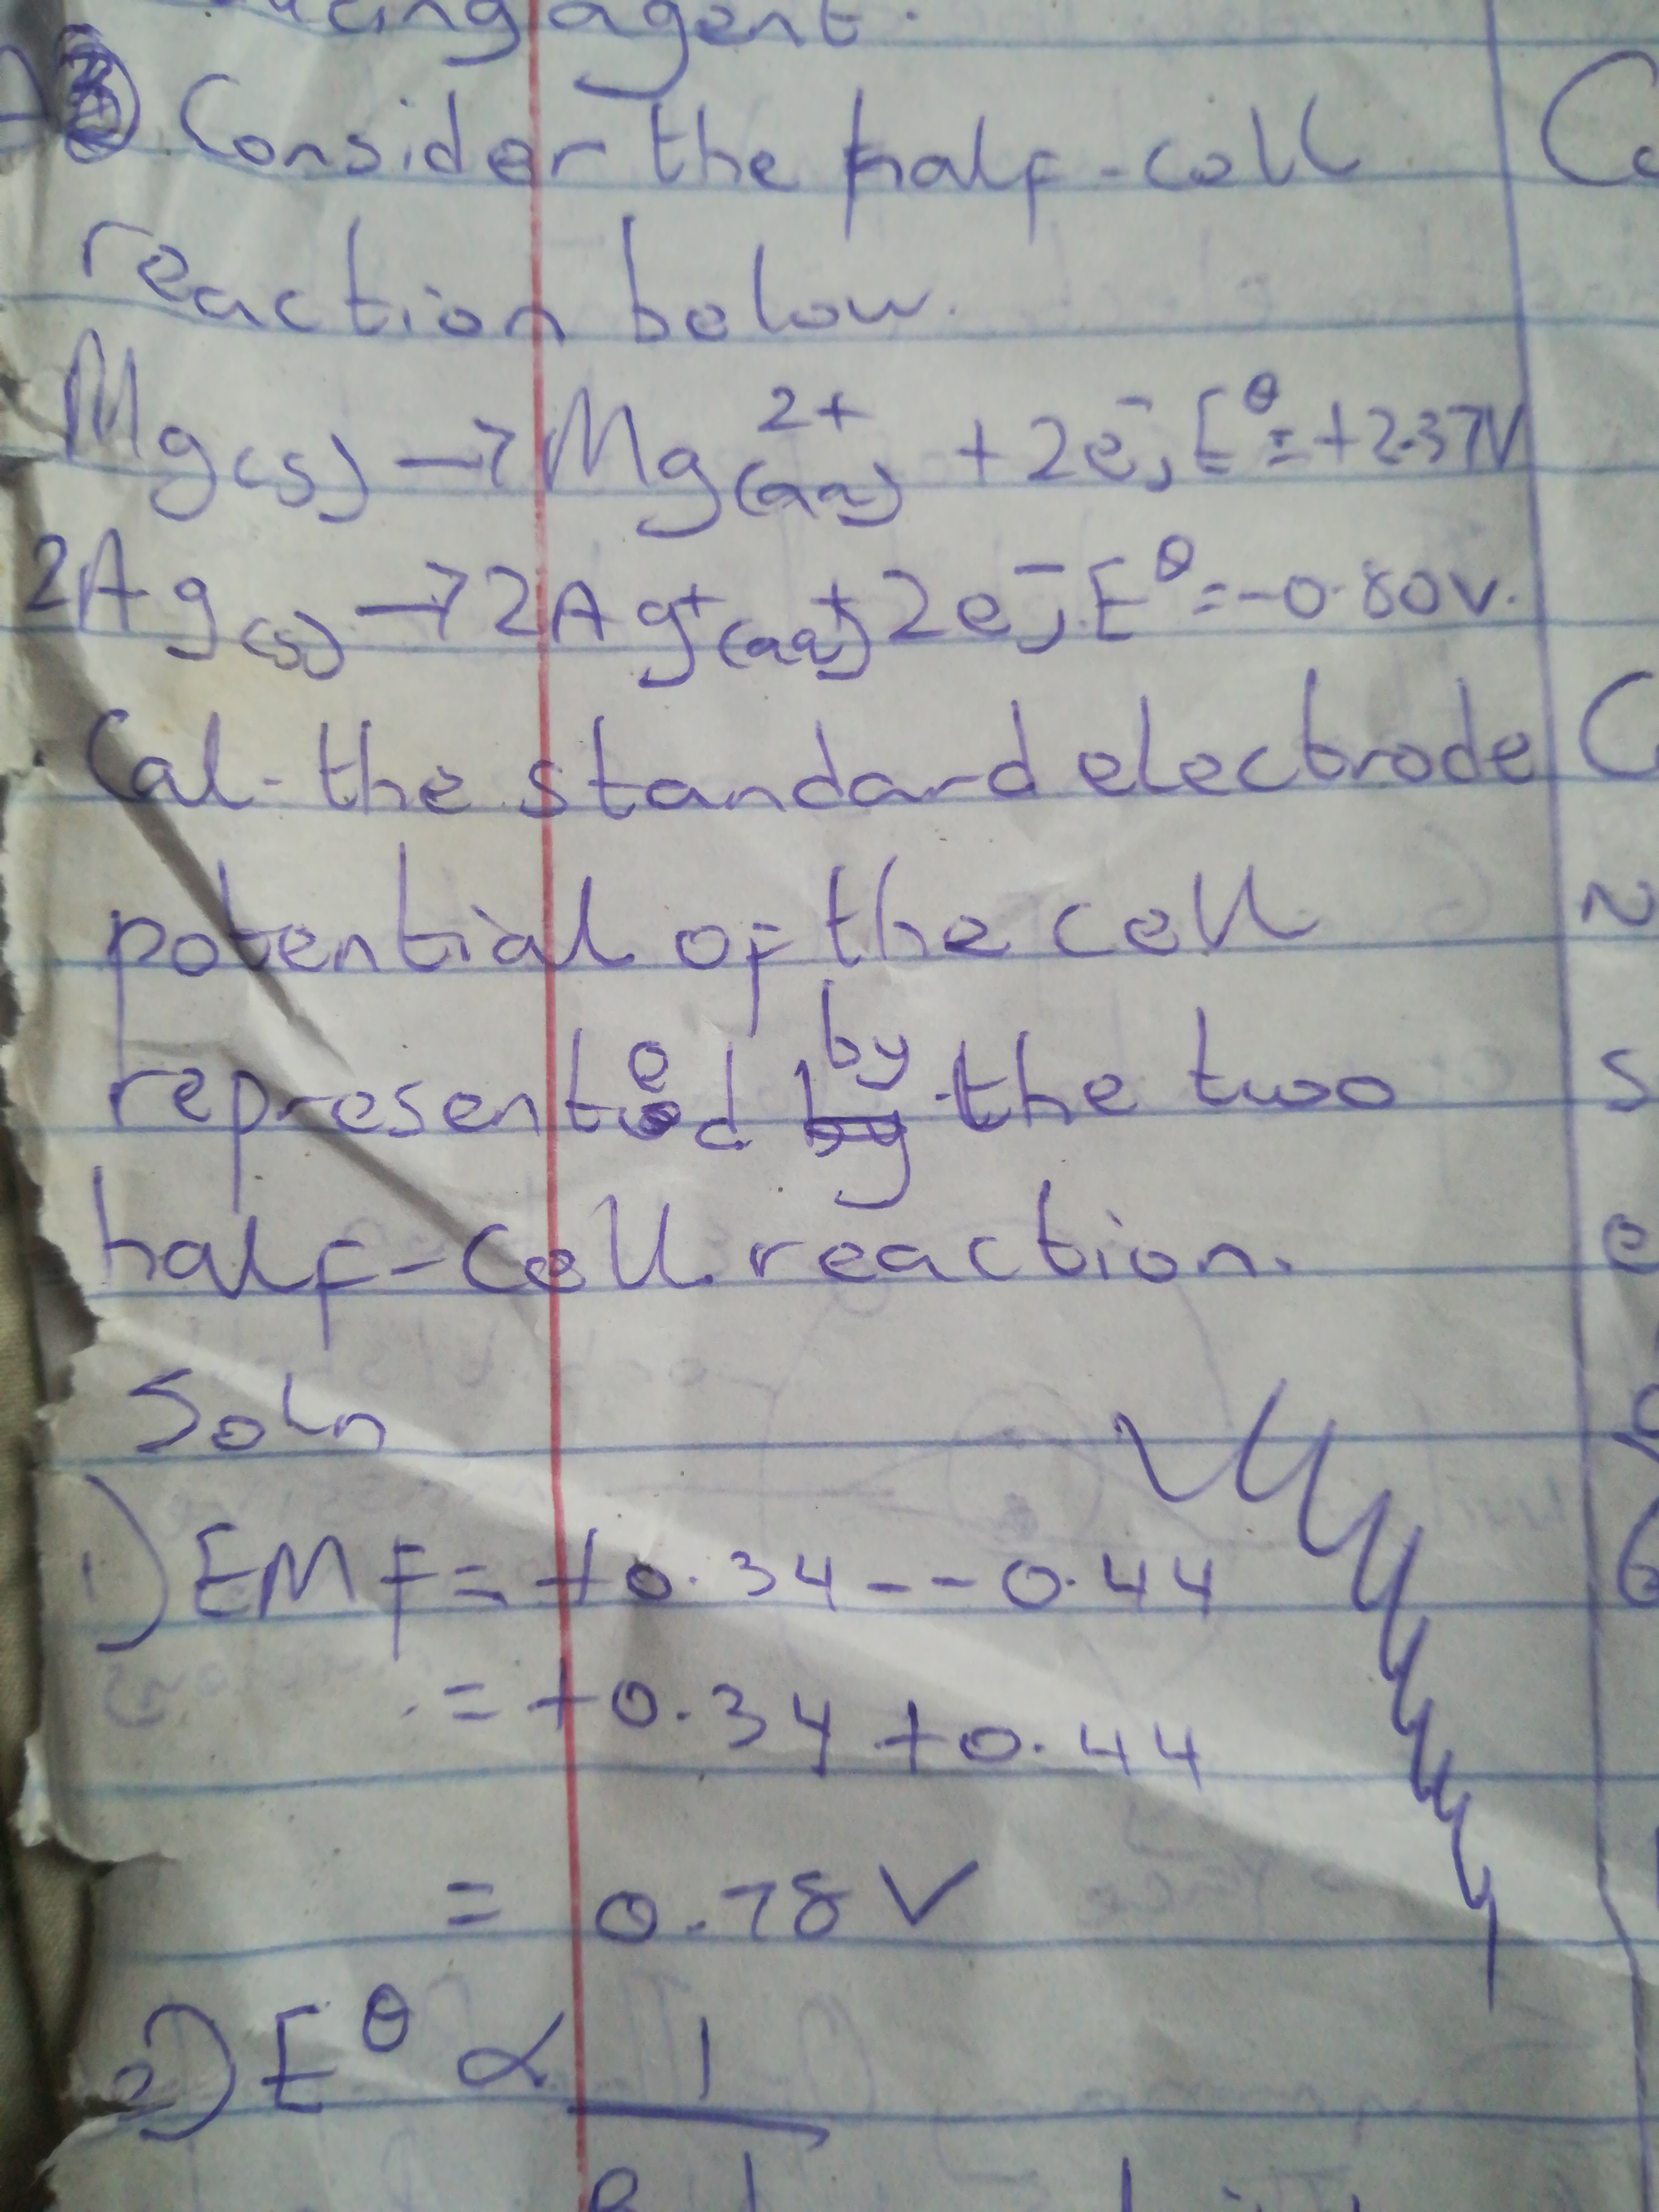 agent.
Consider the half-cell
reaction below.
Mg(s) → Mg²⁺(aq) + 2e⁻, E^θ = +2.37V
2Ag(s) → 2Ag⁺(aq) + 2e⁻, E^θ = -0.80V.
Cal- the standard electrode
potential of the cell
represented by the two
half-cell reaction.
Soln
1) EMF = +0.34 - - 0.44
= +0.34 + 0.44
= 0.78V
2) E^θ ∝ 1